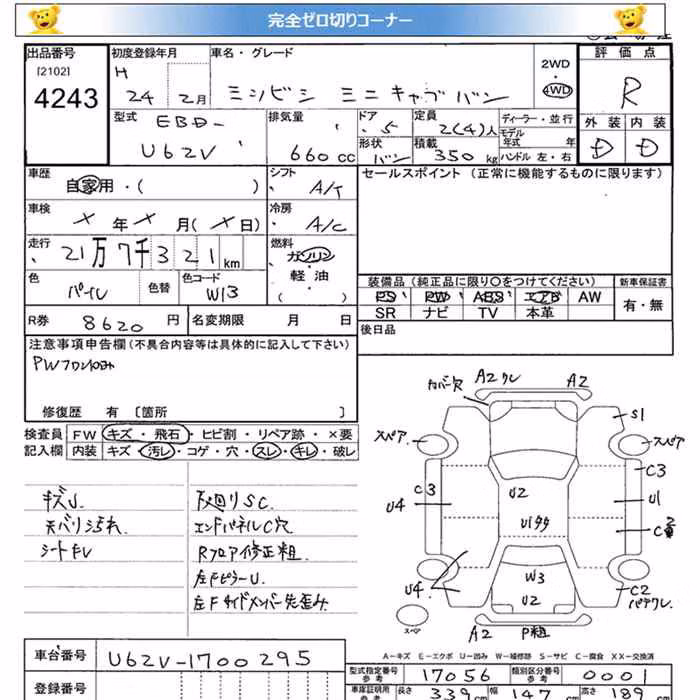 完全ゼロ切りコーナー
出品番号
[2102]
4243
初度登録年月
H
24 2月
車名・グレード
ミツビシ ミニキャブバン
2WD
・
4WD
評価点
R
型式 EBD-
U62V
排気量
660 cc
ドア
・5
形状
バン
定員
2(4)人
積載
350 kg
ディーラー・並行
モデル
年式 年
ハンドル 左・右
外装 内装
D D
車歴
自家用・( )
シフト
A/T
セールスポイント(正常に機能するものに限ります)
車検
× 年 × 月(× 日)
冷房
A/C
走行
21万 7千 3 2 1 km
燃料
ガソリン
・
軽油
( )
色
パール
色替
色コード
W13
装備品(純正品に限り〇をつけてください)
新車保証書
PS PW ABS エアB AW
SR ナビ TV 本革
有・無
R券 8620 円
名変期限 月 日
後日品
注意事項申告欄(不具合内容等は具体的に記入して下さい)
PWフロントのみ
修復歴 有 〔箇所 〕
検査員
記入欄
FW キズ・飛石・ヒビ割・リペア跡・×要
内装 キズ・汚レ・コゲ・穴・スレ・キレ・破レ
キズJ.
天バリ汚れ
下回りSC.
エンドパネルC穴
Rフロア修正粗.
左FピラーU.
左Fサイドメンバー先歪み.
カバー欠
A2 クレ
A2
S1
スペア
スペア
C3
C3
U4
U2
U1
U1多々
C
W3
U4
U2
C2
パテクレ.
スペア
A2
P粗
A-キズ E-エクボ U-凹み W-補修跡 S-サビ C-腐食 XX-交換済
車台番号
U62V-1700295
型式指定番号
参考
17056
類別区分番号
参考
0001
登録番号
車庫証明用
参考
長さ
339 cm
幅
147 cm
高さ
189 cm